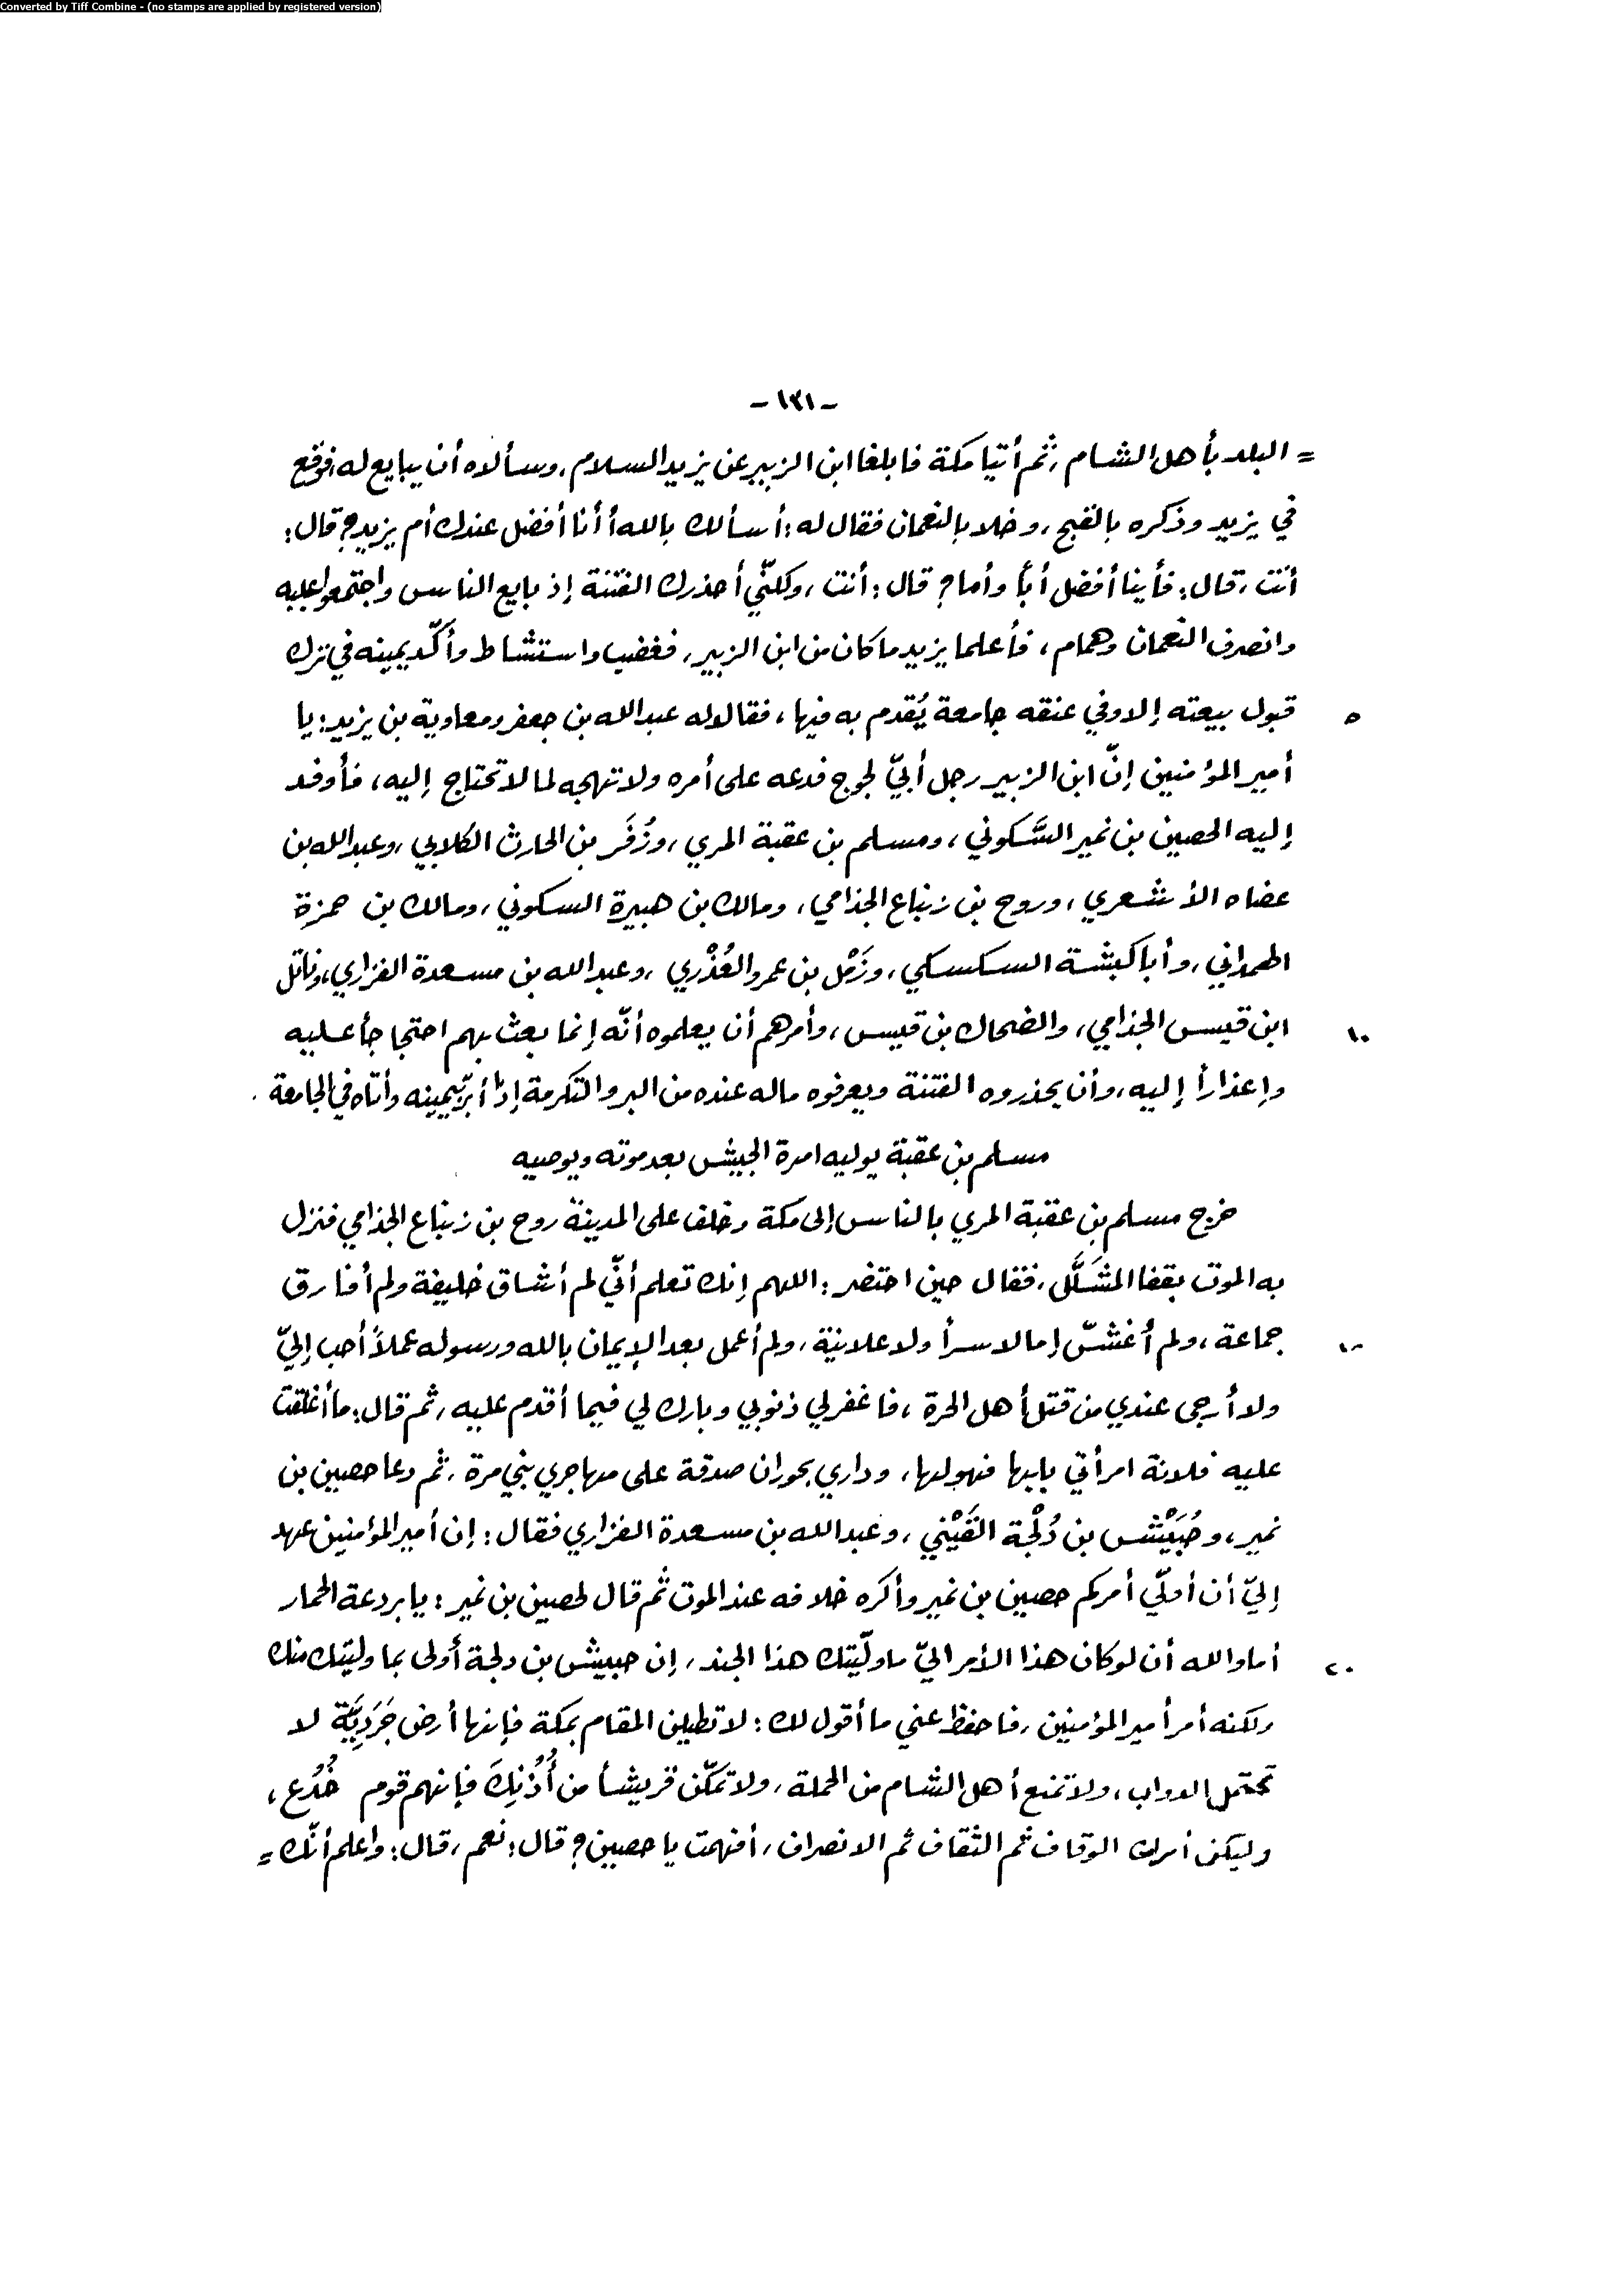 Converted by Tiff Combine - (no stamps are applied by registered version)
- ١٣١ -
= البلد بأهل الشام، ثم أتيا مكة فابلغا ابن الزبير عن يزيد السلام، وسألاه أن يبايع له، فوقع
في يزيد وذكره بالقبح، وخلا بالنعمان فقال له: أسألك بالله أأنا أفضل عندك أم يزيد؟ قال:
أنت، قال: فأينا أفضل أباً وأما؟ قال: أنت، ولكنّي أحذرك الفتنة إذ بايع الناس واجتمعوا عليه
وانصرف النعمان وهمام، فأعلما يزيد ما كان من ابن الزبير، فغضب واستشاط وأكّد يمينه في ترك
٥ قبول بيعته إلا وفي عنقه جامعة يُقدم به فيها، فقال له عبدالله بن جعفر ومعاوية بن يزيد: يا
أمير المؤمنين إنّ ابن الزبير رجل أبيّ لجوج فدعه على أمره ولا تهجه لما لا تحتاج إليه، فأوفد
إليه الحصين بن نمير السَّكوني، ومسلم بن عقبة المري، وزُفَر بن الحارث الكلابي، وعبدالله بن
عضاه الأشعري، وروح بن زنباع الجذامي، ومالك بن هبيرة السكوني، ومالك بن حمزة
الهمداني، وأبا كبشة السكسكي، وزَمْل بن عمرو العُذْري، وعبدالله بن مسعدة الفزاري، وناتل
١٠ ابن قيس الجذامي، والضحاك بن قيس، وأمرهم أن يعلموه أنّه إنما بعث بهم احتجاجاً عليه
وإعذاراً إليه، وأن يحذروه الفتنة ويعرفوه ماله عنده من البر والتكرمة إذا أبرّ يمينه وأتاه في الجامعة.
مسلم بن عقبة يوليه امرة الجيش بعد موته ويوصيه
خرج مسلم بن عقبة المري بالناس إلى مكة وخلف على المدينة روح بن زنباع الجذامي فنزل
به الموت بقفا المشَلَّل، فقال حين احتضر: اللهم إنك تعلم أنّي لم أشاق خليفة ولم أفارق
١٥ جماعة، ولم أُغشّ إمالا سراً ولا علانية، ولم أعمل بعد الإيمان بالله ورسوله عملاً أحب إليّ
ولا أرجى عندي من قتل أهل الحرة، فاغفر لي ذنوبي وبارك لي فيما أقدم عليه، ثم قال: ما أغلقت
عليه فلانة امرأتي بابها فهولها، وداري بحوران صدقة على مهاجري بني مرة، ثم دعا حصين بن
نمير، وحُبَيْش بن دُلْجة القَيْني، وعبدالله بن مسعدة الفزاري فقال: إن أمير المؤمنين عهد
إليّ أن أولّي أمركم حصين بن نمير وأكره خلافه عند الموت ثم قال لحصين بن نمير: يا بردعة الحمار
٢٠ أما والله أن لو كان هذا الأمر اليّ ما ولّيتك هذا الجند، إن حبيش بن دلجة أولى بما وليتك منك
ولكنه أمر أمير المؤمنين، فاحفظ عني ما أقول لك: لا تطيلن المقام بمكة فإنها أرض جَرَدِيَّة لا
تحتمل الدواب، ولا تمنع أهل الشام من الحملة، ولا تمكّن قريشاً من أُذُنِكَ فإنهم قوم خُدُع،
وليكن أمرك الوقاف ثم الثقاف ثم الانصراف، أفهمت يا حصين؟ قال: نعم، قال: واعلم أنّك =